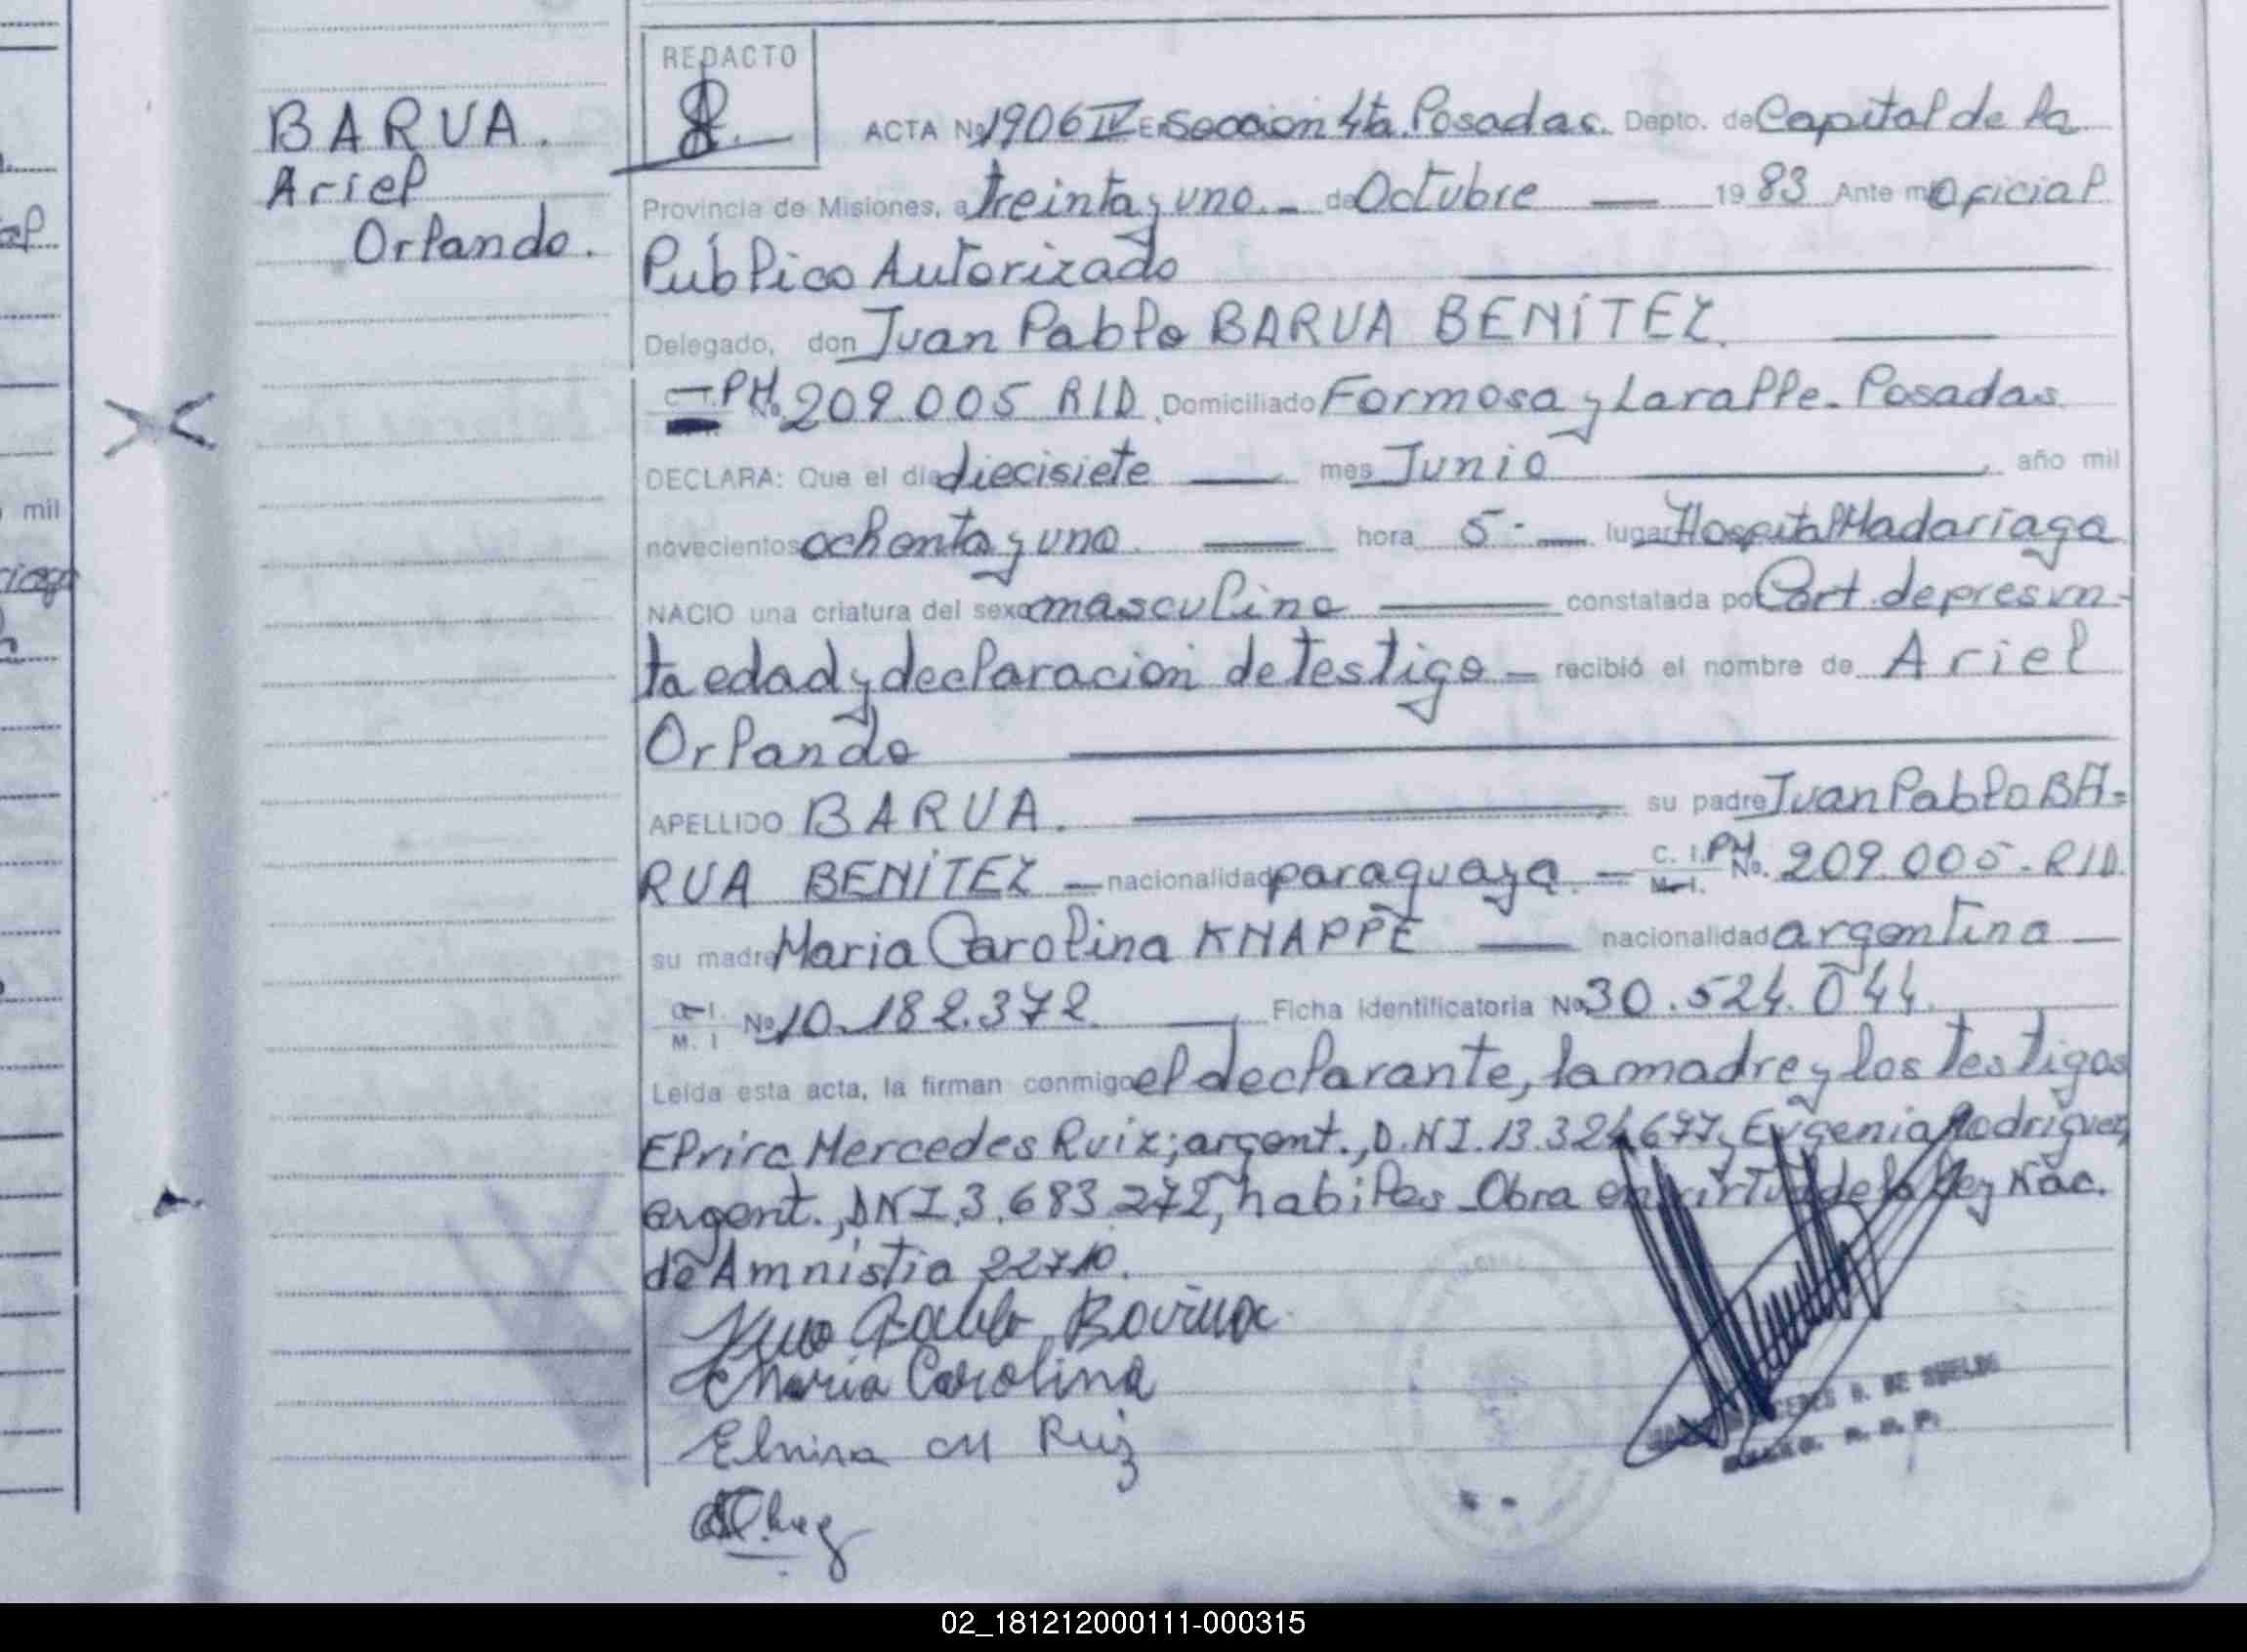 BARVA.
Ariel
Orlando.
REDACTO
ACTA Nº 1906 IV En Sección 4ta. Posadas. Depto. de Capital de la
Provincia de Misiones, a treinta y uno.- de Octubre — 1983 Ante mi Oficial
Público Autorizado
Delegado, don Juan Pablo BARUA BENÍTEZ.
C.I. PH. No. 209.005 RID. Domiciliado Formosa y Laralle. Posadas
DECLARA: Que el día diecisiete — mes Junio — año mil
novecientos ochenta y uno. — hora 5- — lugar Hospital Madariaga
NACIO una criatura del sexo masculino — constatada por Cert. de presun-
ta edad y declaración de testigo — recibió el nombre de Ariel
Orlando
APELLIDO BARUA. — su padre Juan Pablo BA=
RUA BENÍTEZ — nacionalidad paraguaya. — C. I. PH. M. I. No. 209.005.- RID.
su madre Maria Carolina KNAPPE — nacionalidad argentina —
C. I. M. I Nº 10.182.372 — Ficha identificatoria Nº 30.524.044.
Leída esta acta, la firman conmigo el declarante, la madre y los testigos
Elnira Mercedes Ruiz; argent., D.N.I. 13.324.677, Eugenia Rodriguez,
argent., DNI. 3.683.272, habiles. Obra en virtud de la Ley Nac.
de Amnistia 22710.
Juan Pablo Barua
Maria Carolina
Elnira M Ruiz
DE
02_181212000111-000315